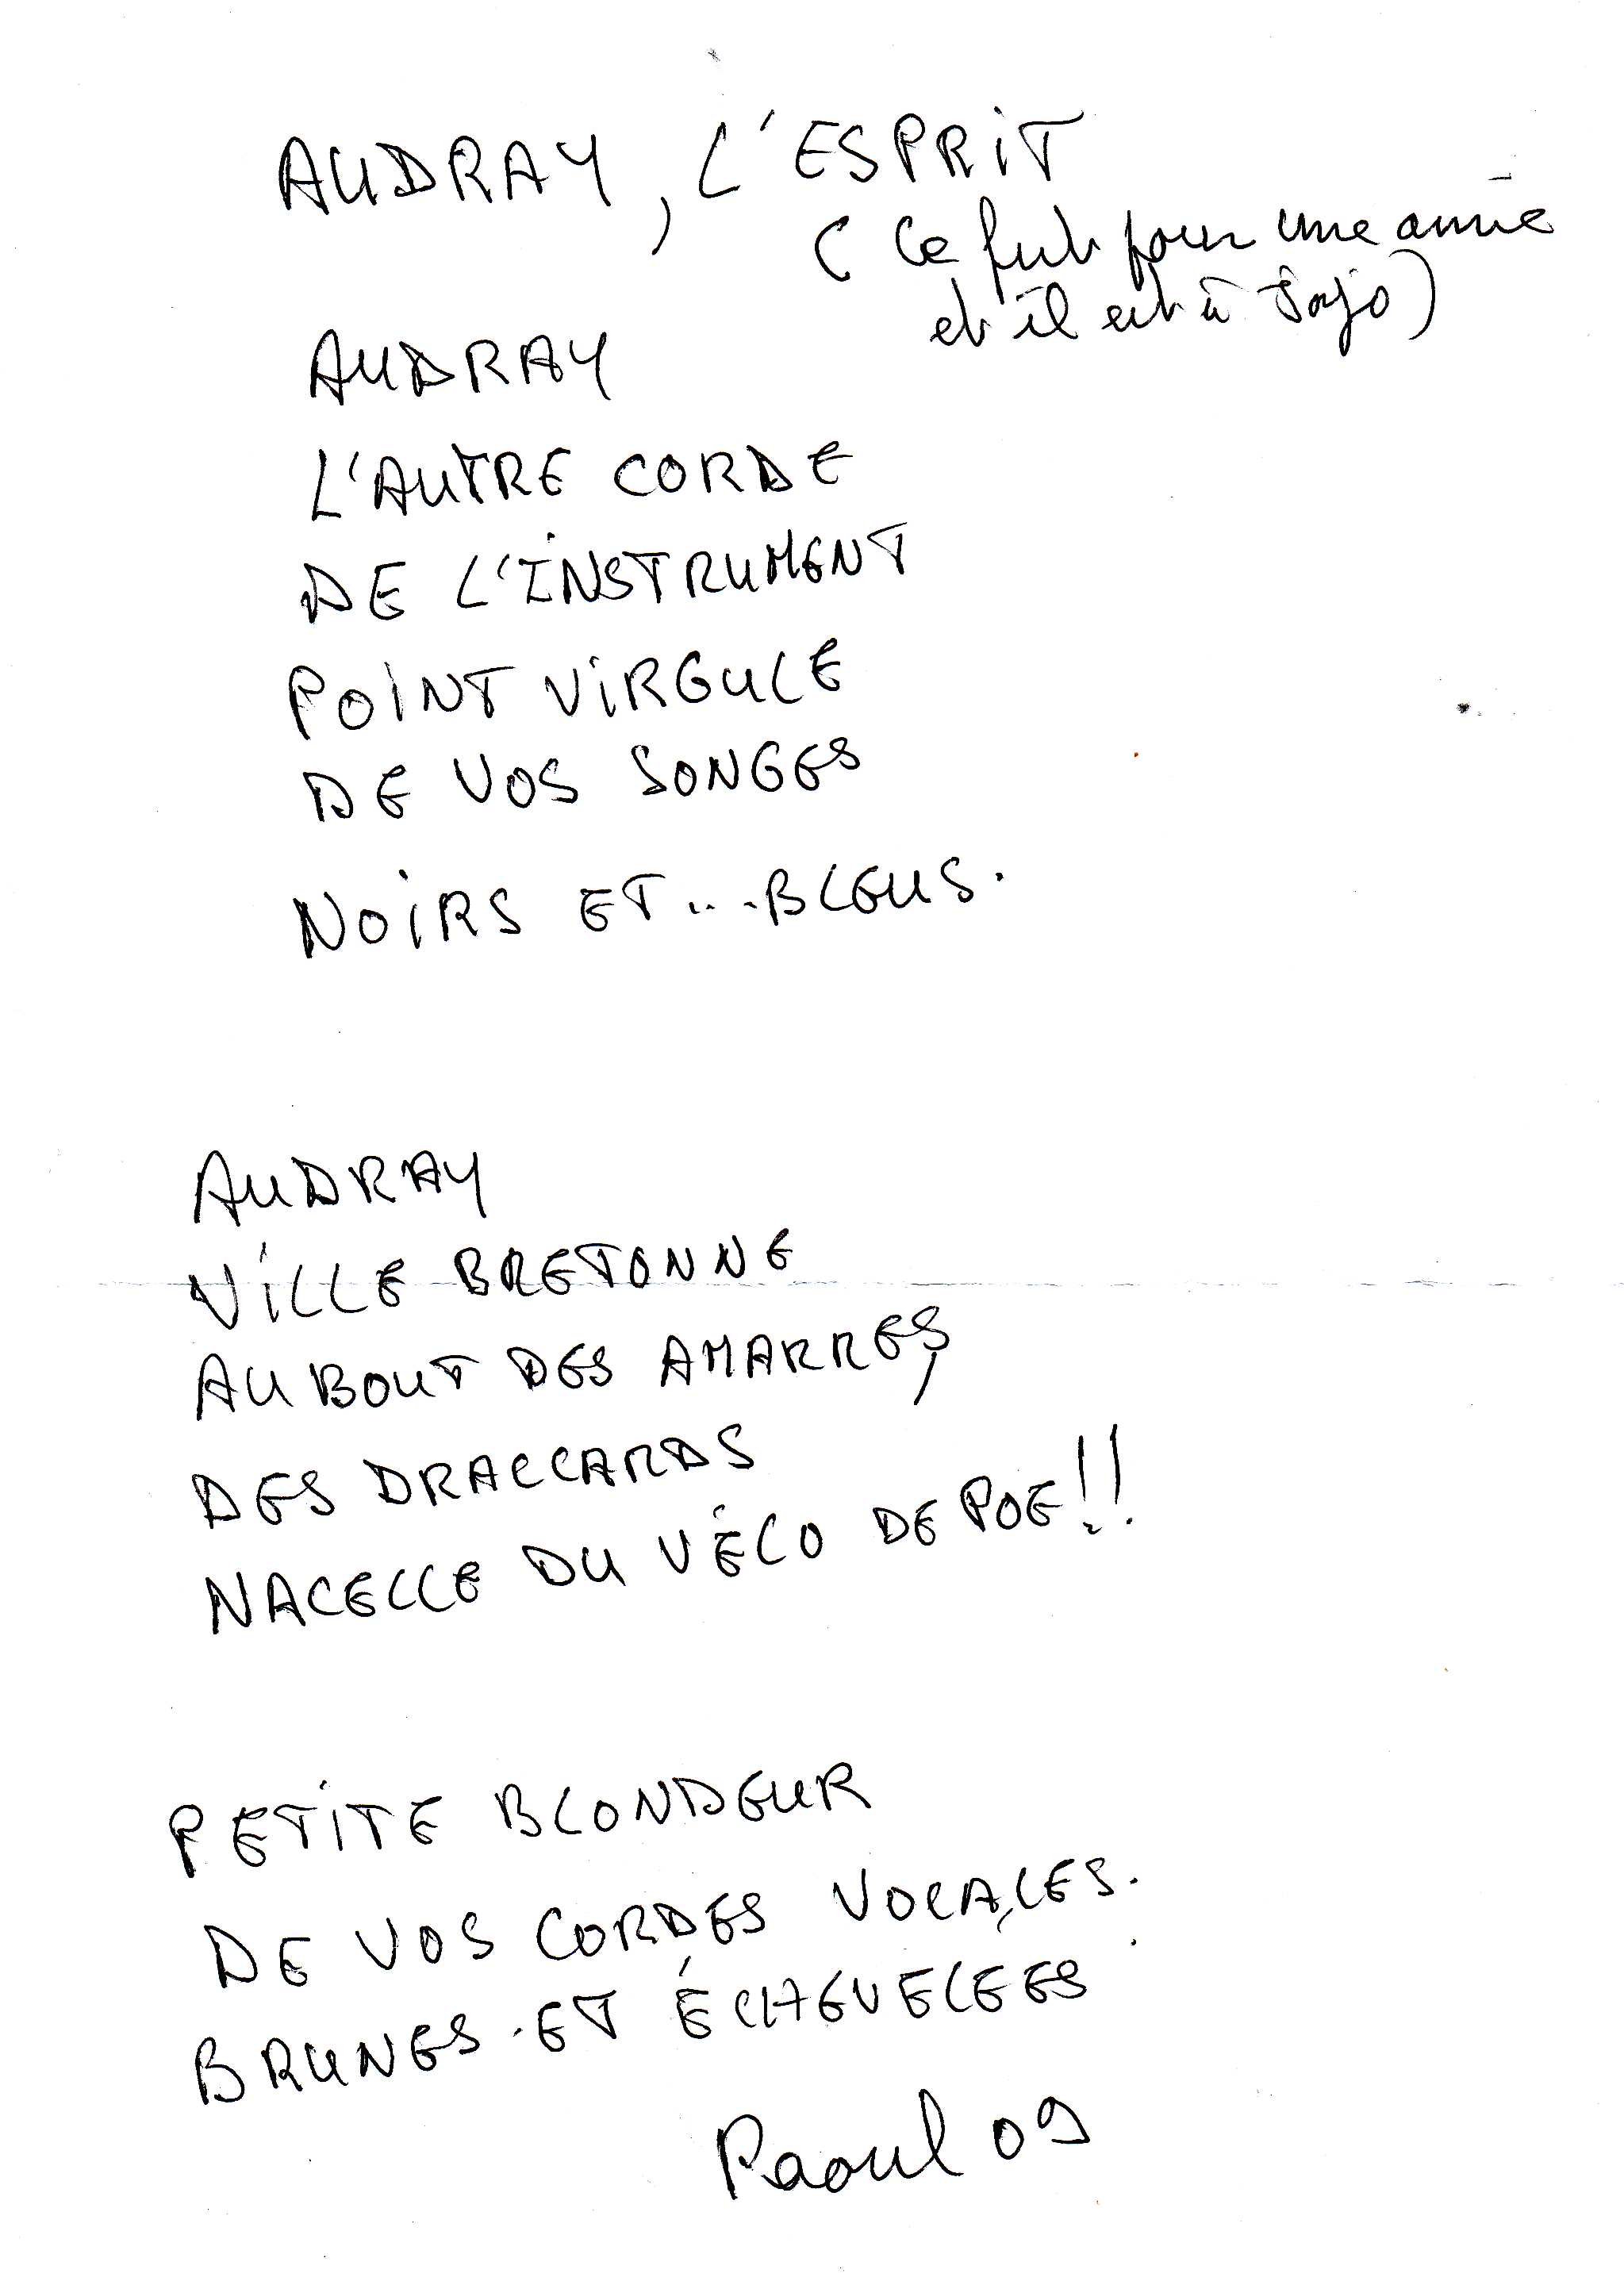 AUDRAY, L'ESPRIT
(Ce fut pour une amie
et il est à Sojo)
AUDRAY
L'AUTRE CORDE
DE L'INSTRUMENT
POINT VIRGULE
DE VOS SONGES
NOIRS ET... BLEUS.
AUDRAY
VILLE BRETONNE
AU BOUT DES AMARRES,
DES DRACCARDS
NACELLE DU VÉLO DE POE!!
PETITE BLONDEUR
DE VOS CORDES VOCALES.
BRUNES ET ÉCHEVELÉES
Raoul 09